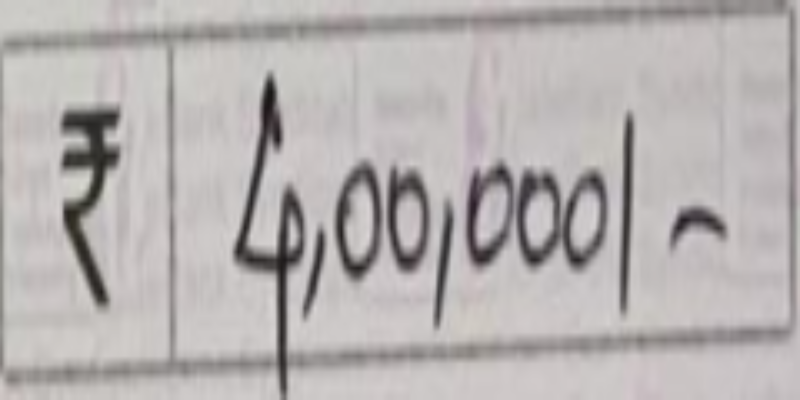 ₹ 4,00,000/-